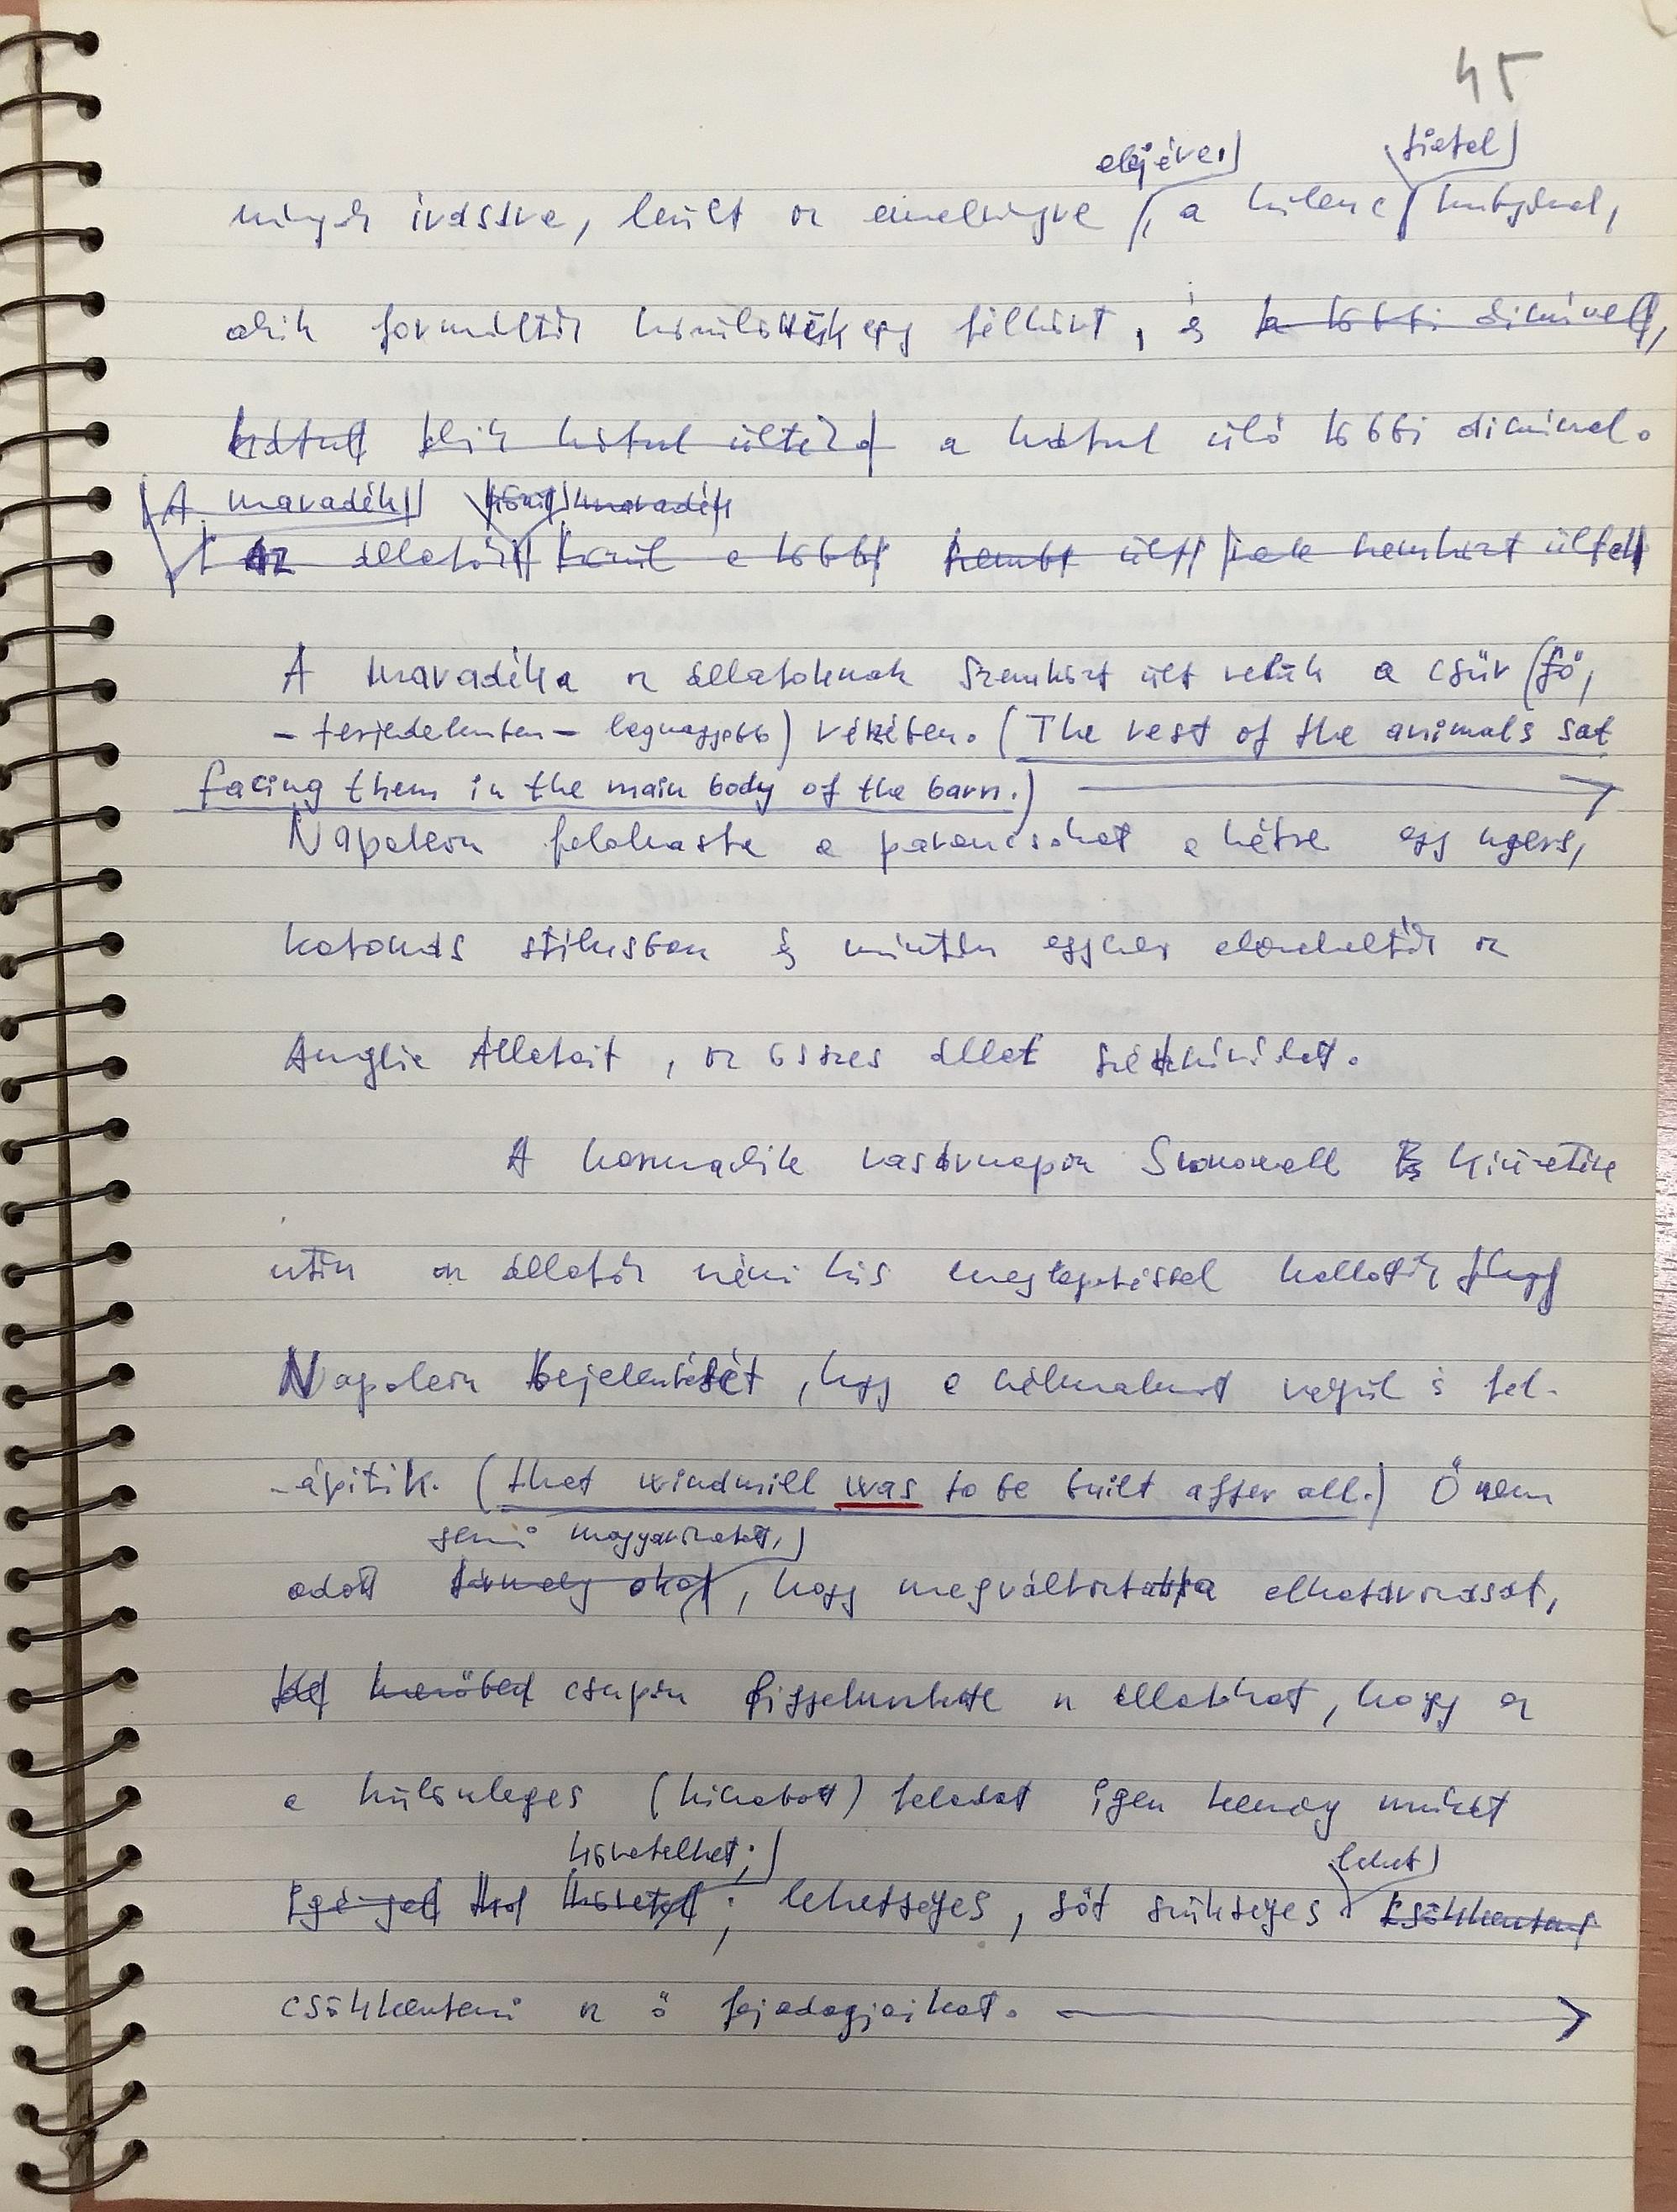 45
elejére, fiatal
ült az emelvényre, a kilenc kutyával,
akik formálták körülöttük egy félkört, és a többi disznóval,
hátul akik hátul ültek a hátul ülő többi disznóval.
A maradék maradék
Az állatok közül a többi szemben ült
A maradéka az állatoknak szemközt ült velük a csűr (fő,
- terjedelmben - legnagyobb) részében. (The rest of the animals sat
facing them in the main body of the barn.)
Napoleon felolvasta a parancsokat a hétre egy nyers,
katonás stílusban és miután egyszer elénekelték az
Anglia Állatait, az összes állat szétszéledt.
A harmadik vasárnapon Snowball kiűzetése
után az állatok némi kis meglepetéssel hallották hogy
Napoleon bejelentését, hogy a szélmalmot végül is fel-
-építik. (that windmill was to be built after all.) Ő nem
semmi magyarázatot,
adott bármely okot, hogy megváltoztatta elhatározását,
csupán figyelmeztette az állatokat, hogy ez
a különleges (kihatott) feladat igen kemény munkát
követelhet; lehet
követel; lehetséges, sőt szükséges csökkenteni
csökkenteni az ő fejadagjaikat.